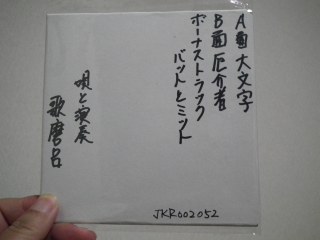 A面大文字
B面厄介者
ボーナストラック
バットとミット
唄と演奏
歌磨呂
JKR002052